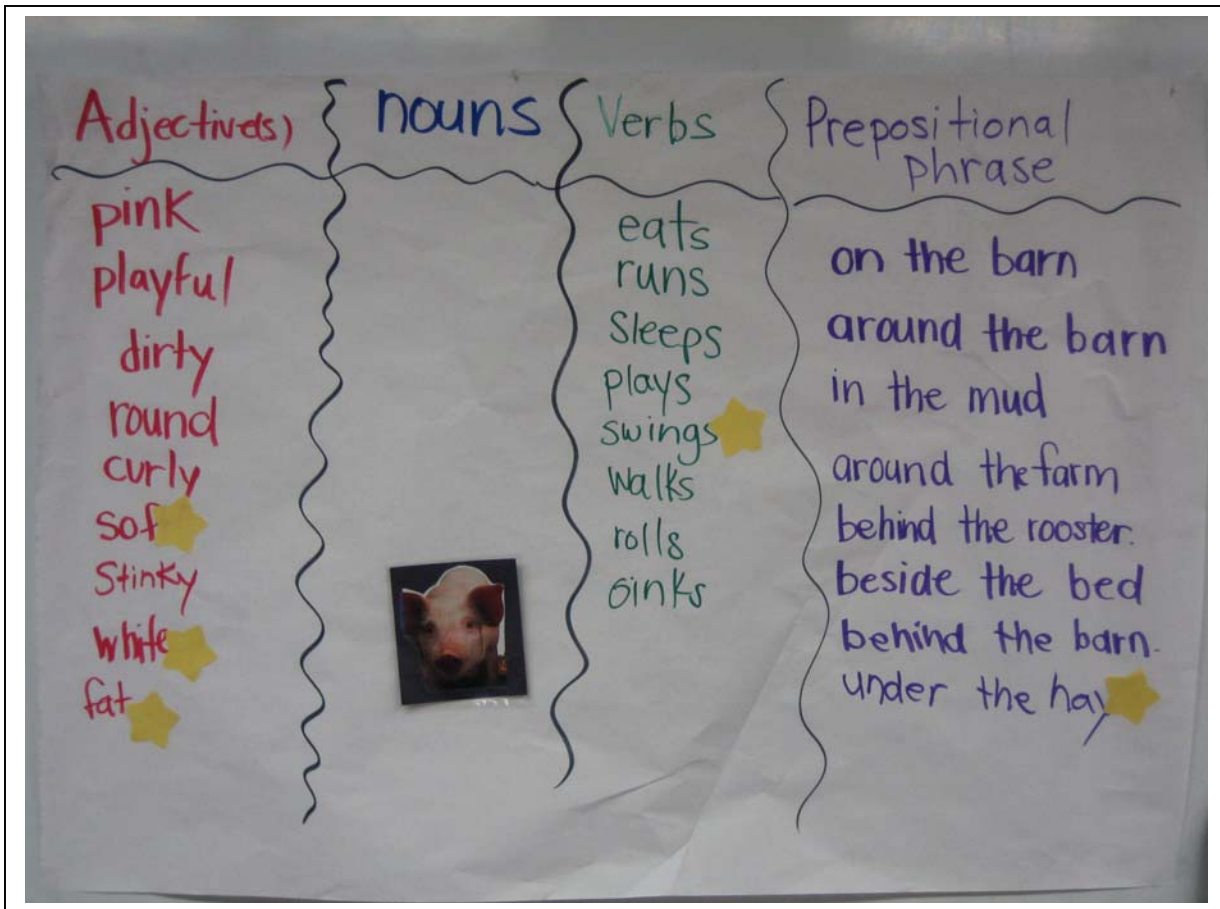 Adjective(s)
pink
playful
dirty
round
curly
sof
Stinky
white
fat
nouns
Verbs
eats
runs
Sleeps
plays
swings
Walks
rolls
oinks
Prepositional
phrase
on the barn
around the barn
in the mud
around the farm
behind the rooster.
beside the bed
behind the barn.
under the hay